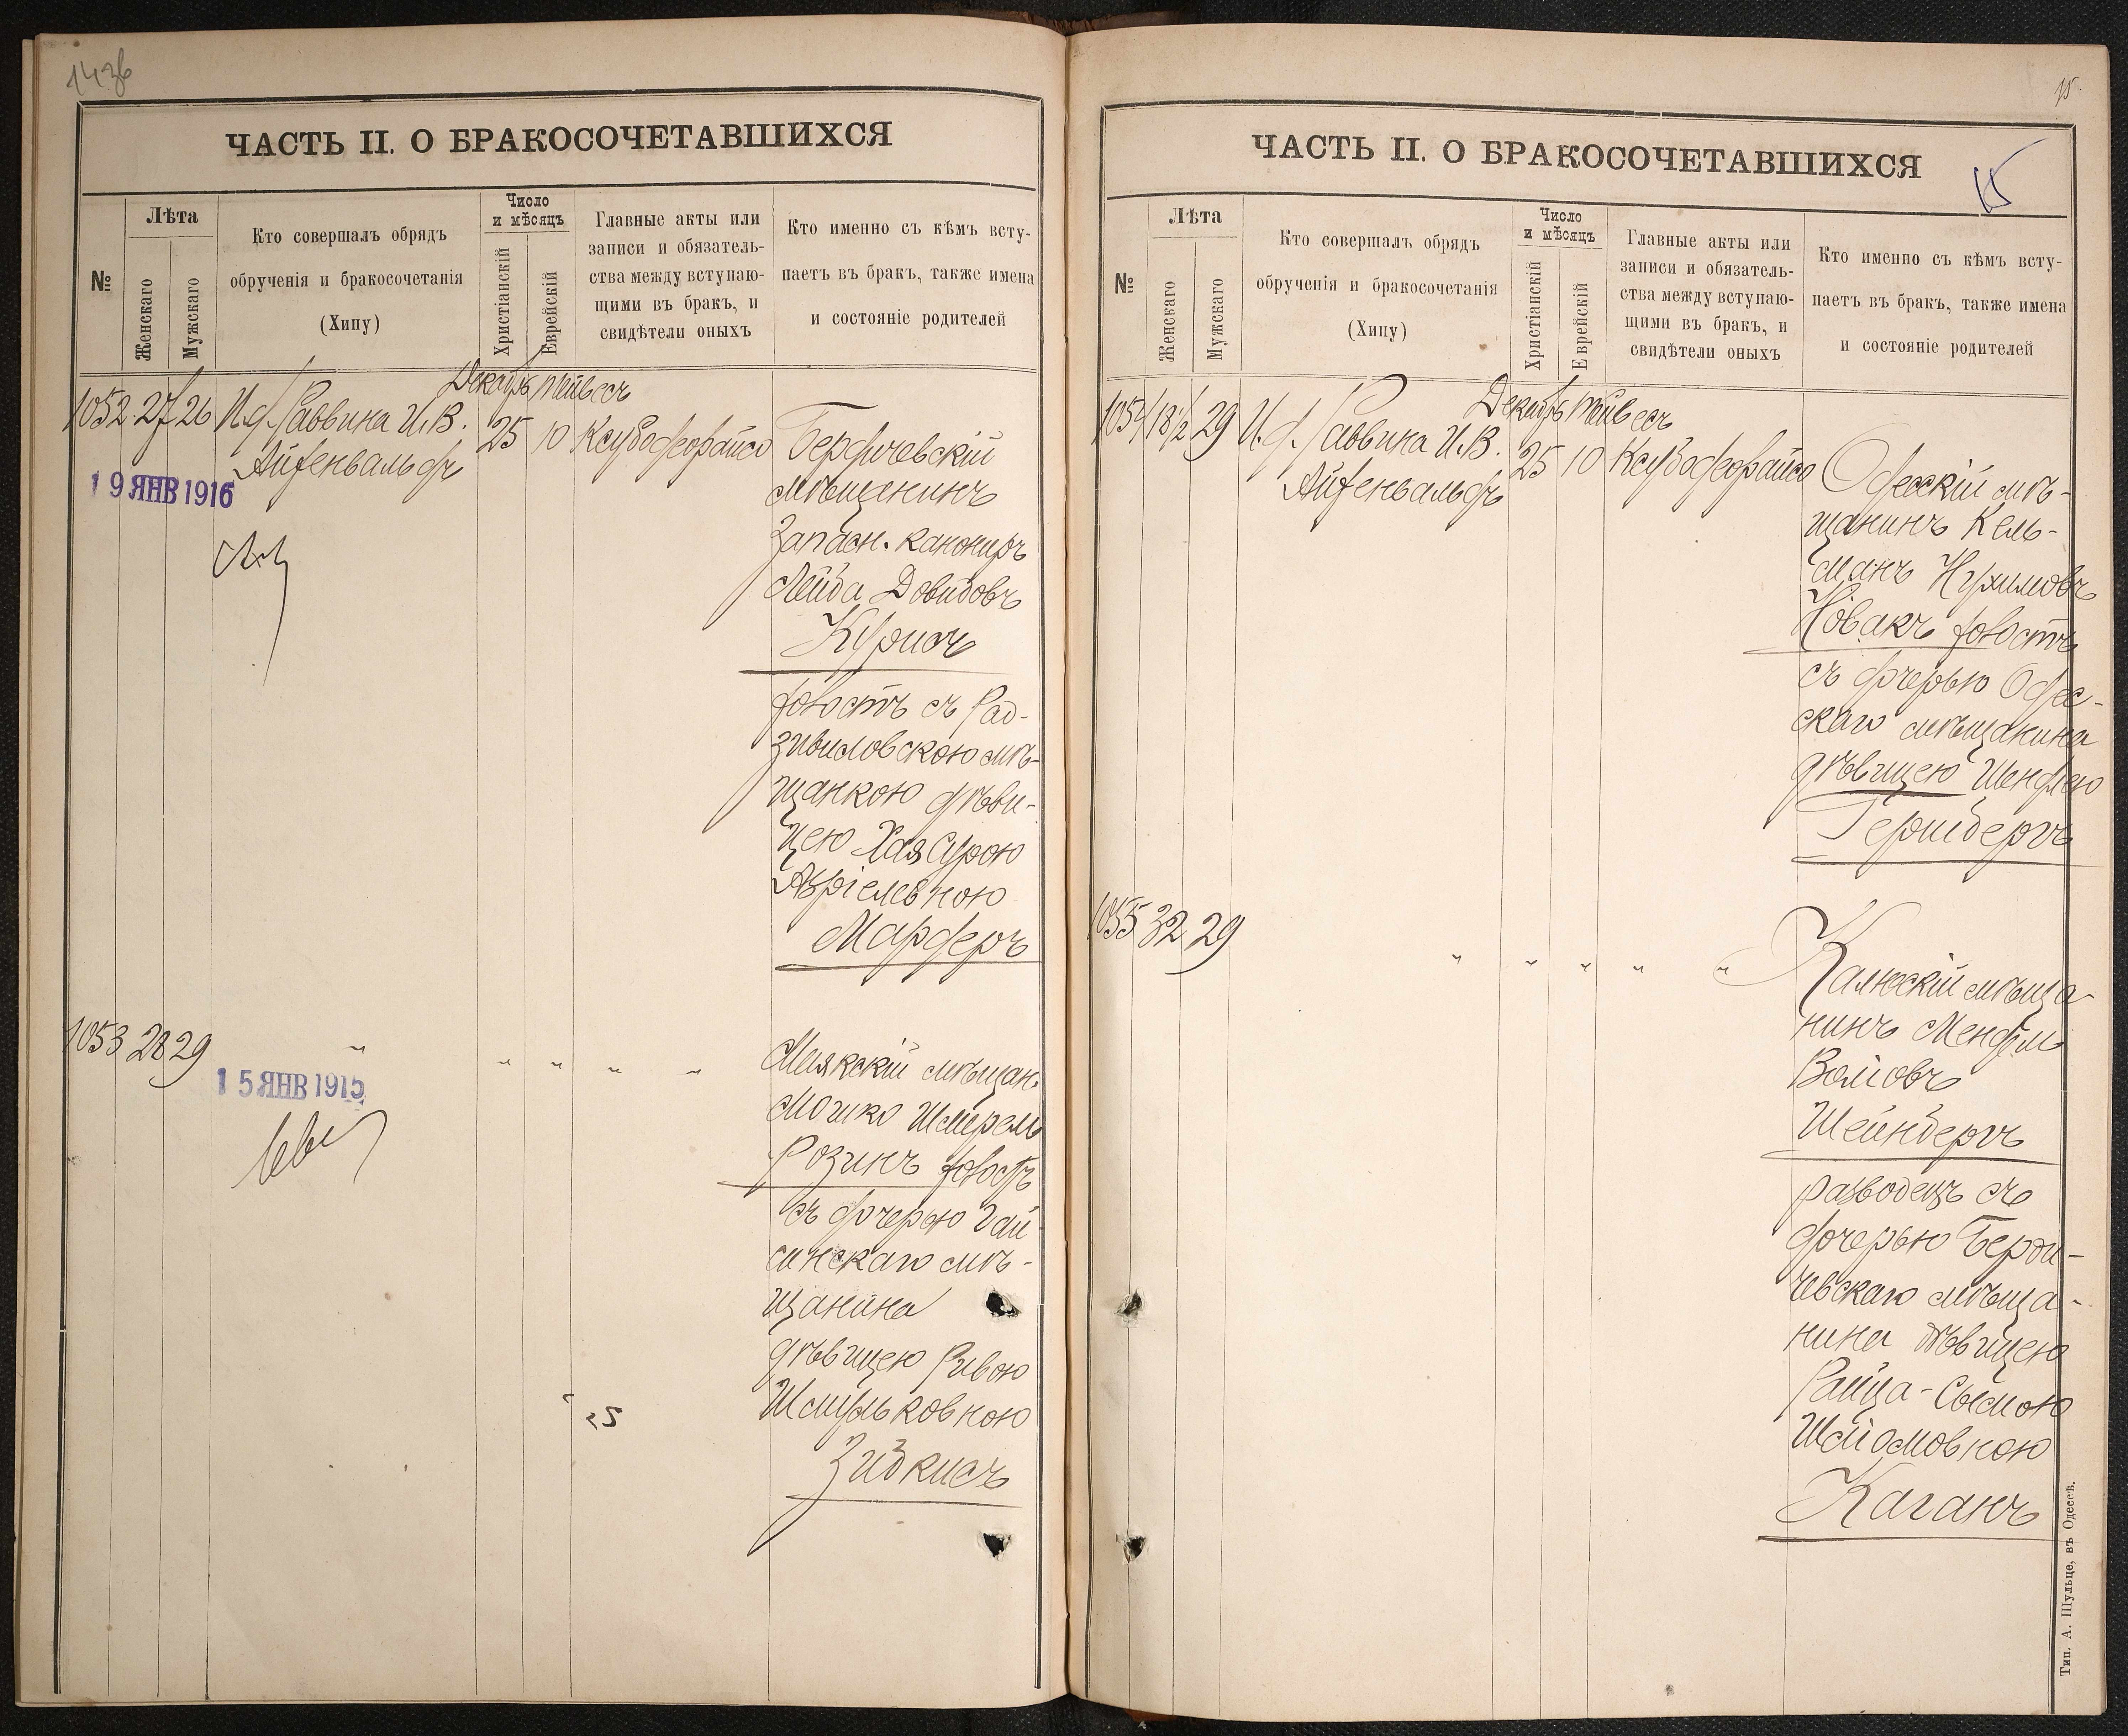 ЧАСТЬ II. О БРАКОСОЧЕТАВШИХСЯ
№
Лѣта
Женскаго
Мужскаго
Кто совершалъ обрядъ
обрученія и бракосочетанія
(Хипу)
Число
и мѣсяцъ
Христіанскій
Еврейскій
Главные акты или
записи и обязатель-
ства между вступаю-
щими въ бракъ, и
свидѣтели оныхъ
Кто именно съ кѣмъ всту-
паетъ въ бракъ, также имена
и состояніе родителей
Декабрь Тейвесъ
1052 27 26 И.д. Раввина И.В.
Айзенвальдъ
25 10 Ксубодеорайсо
19 ЯНВ 1916
Бердичевскій
мѣщанинъ
запасн. канониръ
Лейба Довидовъ
Курисъ
холостъ съ Рад-
зивиловскою мѣ-
щанкою дѣви-
цею Хая Сурою
Азріелевною
Мардеръ
1053 28 29 " " " " "
15 ЯНВ 1915
Маякскій мѣщан.
Мошко Шмерель
Розинъ холостъ
съ дочерью Гай-
синскаго мѣ-
щанина
дѣвицею Ривою
Шмульковною
Зибкисъ
15
ЧАСТЬ II. О БРАКОСОЧЕТАВШИХСЯ
15
№
Лѣта
Женскаго
Мужскаго
Кто совершалъ обрядъ
обрученія и бракосочетанія
(Хипу)
Число
и мѣсяцъ
Христіанскій
Еврейскій
Главные акты или
записи и обязатель-
ства между вступаю-
щими въ бракъ, и
свидѣтели оныхъ
Кто именно съ кѣмъ всту-
паетъ въ бракъ, также имена
и состояніе родителей
Декабрь Тейвесъ
1054 18½ 29 И.д. Раввина И.В.
Айзенвальдъ
25 10 Ксубодеорайсо
Одесскій мѣ-
щанинъ Кель-
манъ Нухимовъ
Новакъ холостъ
съ дочерью Одес-
скаго мѣщанина
дѣвицею Шендлею
Гершбергъ
1055 32 29 " " " " "
Калюсскій мѣща-
нинъ Мендель
Волховъ
Шейнбергъ
разводецъ съ
дочерью Берди-
чевскаго мѣща-
нина дѣвицею
Райца-Сымою
Шліомовною
Каганъ
Тип. А. Шульце, въ Одессѣ.